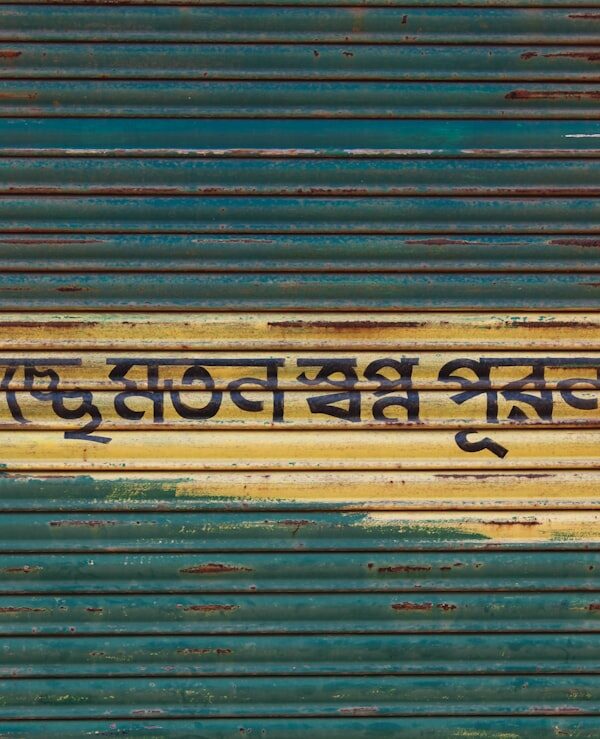 চ্ছে মতন স্বপ্ন পূরন